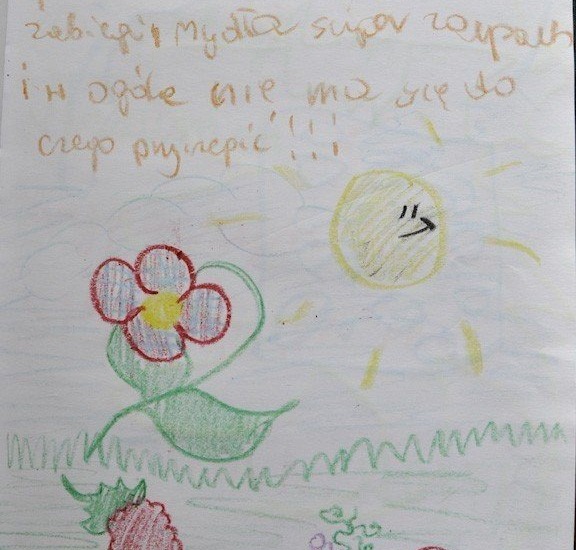 zabiegi, mydła super zapach
i w ogóle nie ma się do
czego przyczepić!!!